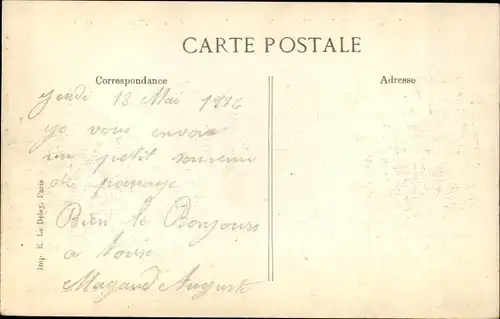 CARTE POSTALE
Correspondance
Adresse
Jeudi 18 Mai 1916
Je vous envoie
un petit souvenir
de passage
Bien le Bonjours
a tous
Magaud Auguste
Imp. E. Le Deley, Paris